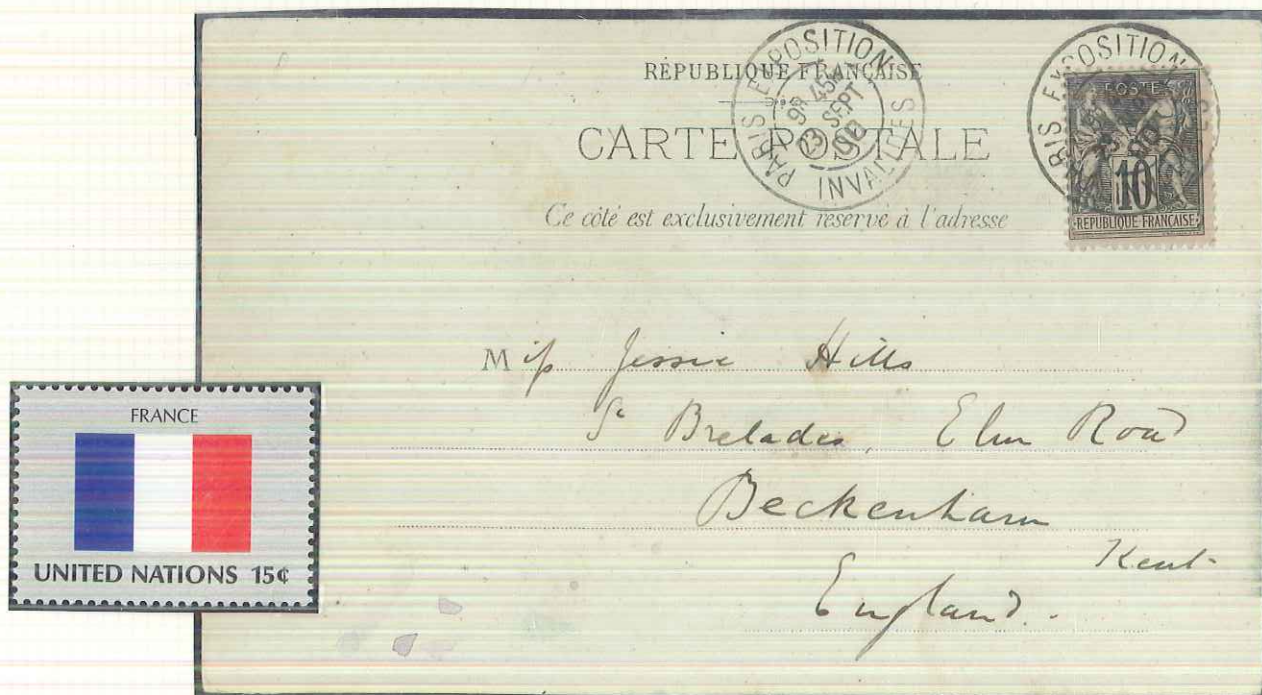 RÉPUBLIQUE FRANÇAISE
CARTE POSTALE
Ce côté est exclusivement réservé à l'adresse
PARIS EXPOSITION
INVALIDES
23 SEPT
PARIS EXPOSITION
POSTES
10
REPUBLIQUE FRANÇAISE
Miss Jessie Hills
St Brelades, Elm Road
Beckenham
Kent
England.
FRANCE
UNITED NATIONS 15¢